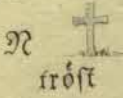 N
tröst